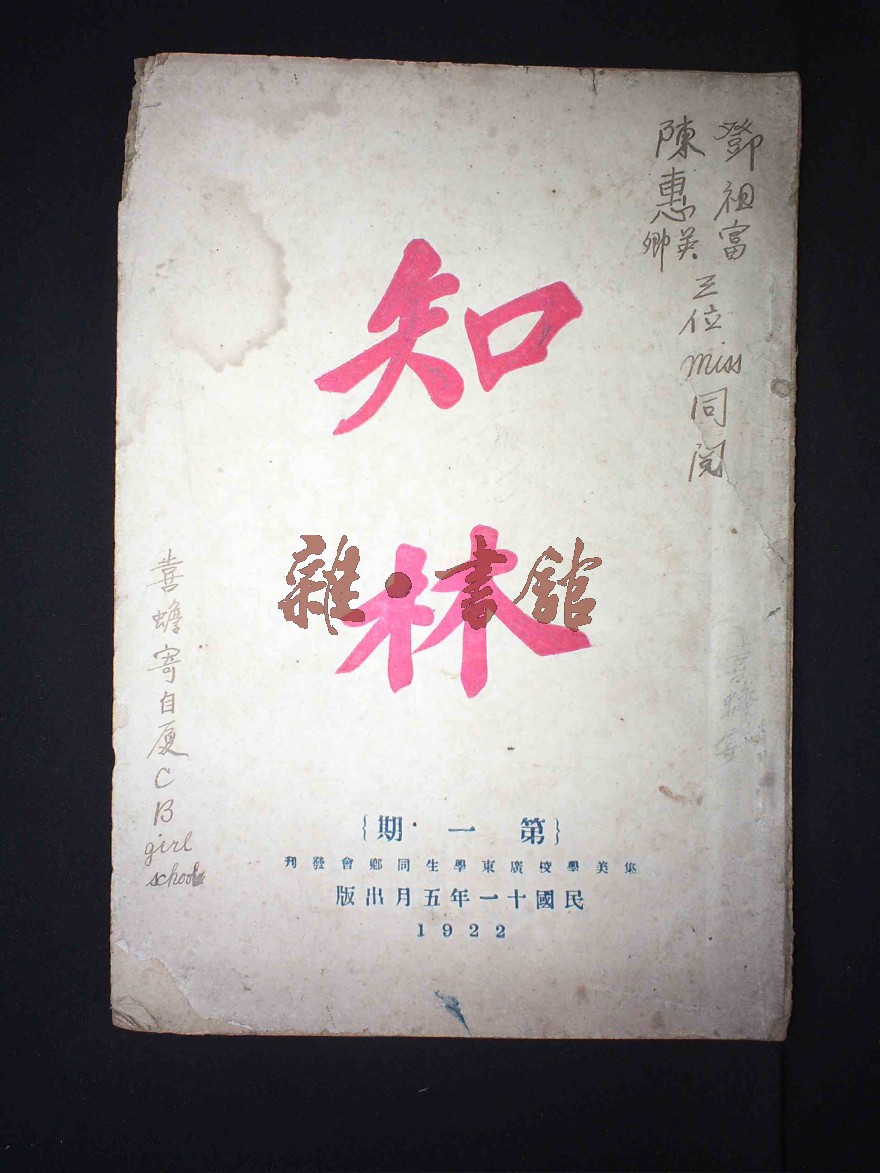 鄧祖富
陳惠英
卿
三位 miss 同閱
知林
雜·書館
喜蟾寄自厦 C B girl school
{第一期}
集美學校廣東學生同鄉會發刊
民國十一年五月出版
1922